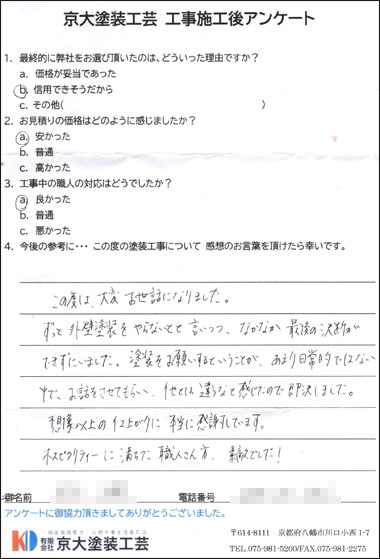 京大塗装工芸 工事施工後アンケート
1. 最終的に弊社をお選び頂いたのは、どういった理由ですか？
a. 価格が妥当であった
b. 信用できそうだから
c. その他( )
2. お見積りの価格はどのように感じましたか？
a. 安かった
b. 普通
c. 高かった
3. 工事中の職人の対応はどうでしたか？
a. 良かった
b. 普通
c. 悪かった
4. 今後の参考に・・・ この度の塗装工事について 感想のお言葉を頂けたら幸いです。
この度は、大変お世話になりました。
ずっと外壁塗装をやらないとと言いつつ、なかなか最後の決断が
できずにいました。塗装をお願いするということが、あまり日常的ではない
中で、お話をさせてもらい、他とは違うなと感じたので即決しました。
想像以上の仕上がりに本当に感謝しています。
ホスピタリティーに満ちた職人さん方、素敵でした！
御名前 電話番号
アンケートに御協力頂きましてありがとうございました。
KD 有限会社 京大塗装工芸
〒614-8111 京都府八幡市川口小西1-7
TEL.075-981-5200/FAX.075-981-2275